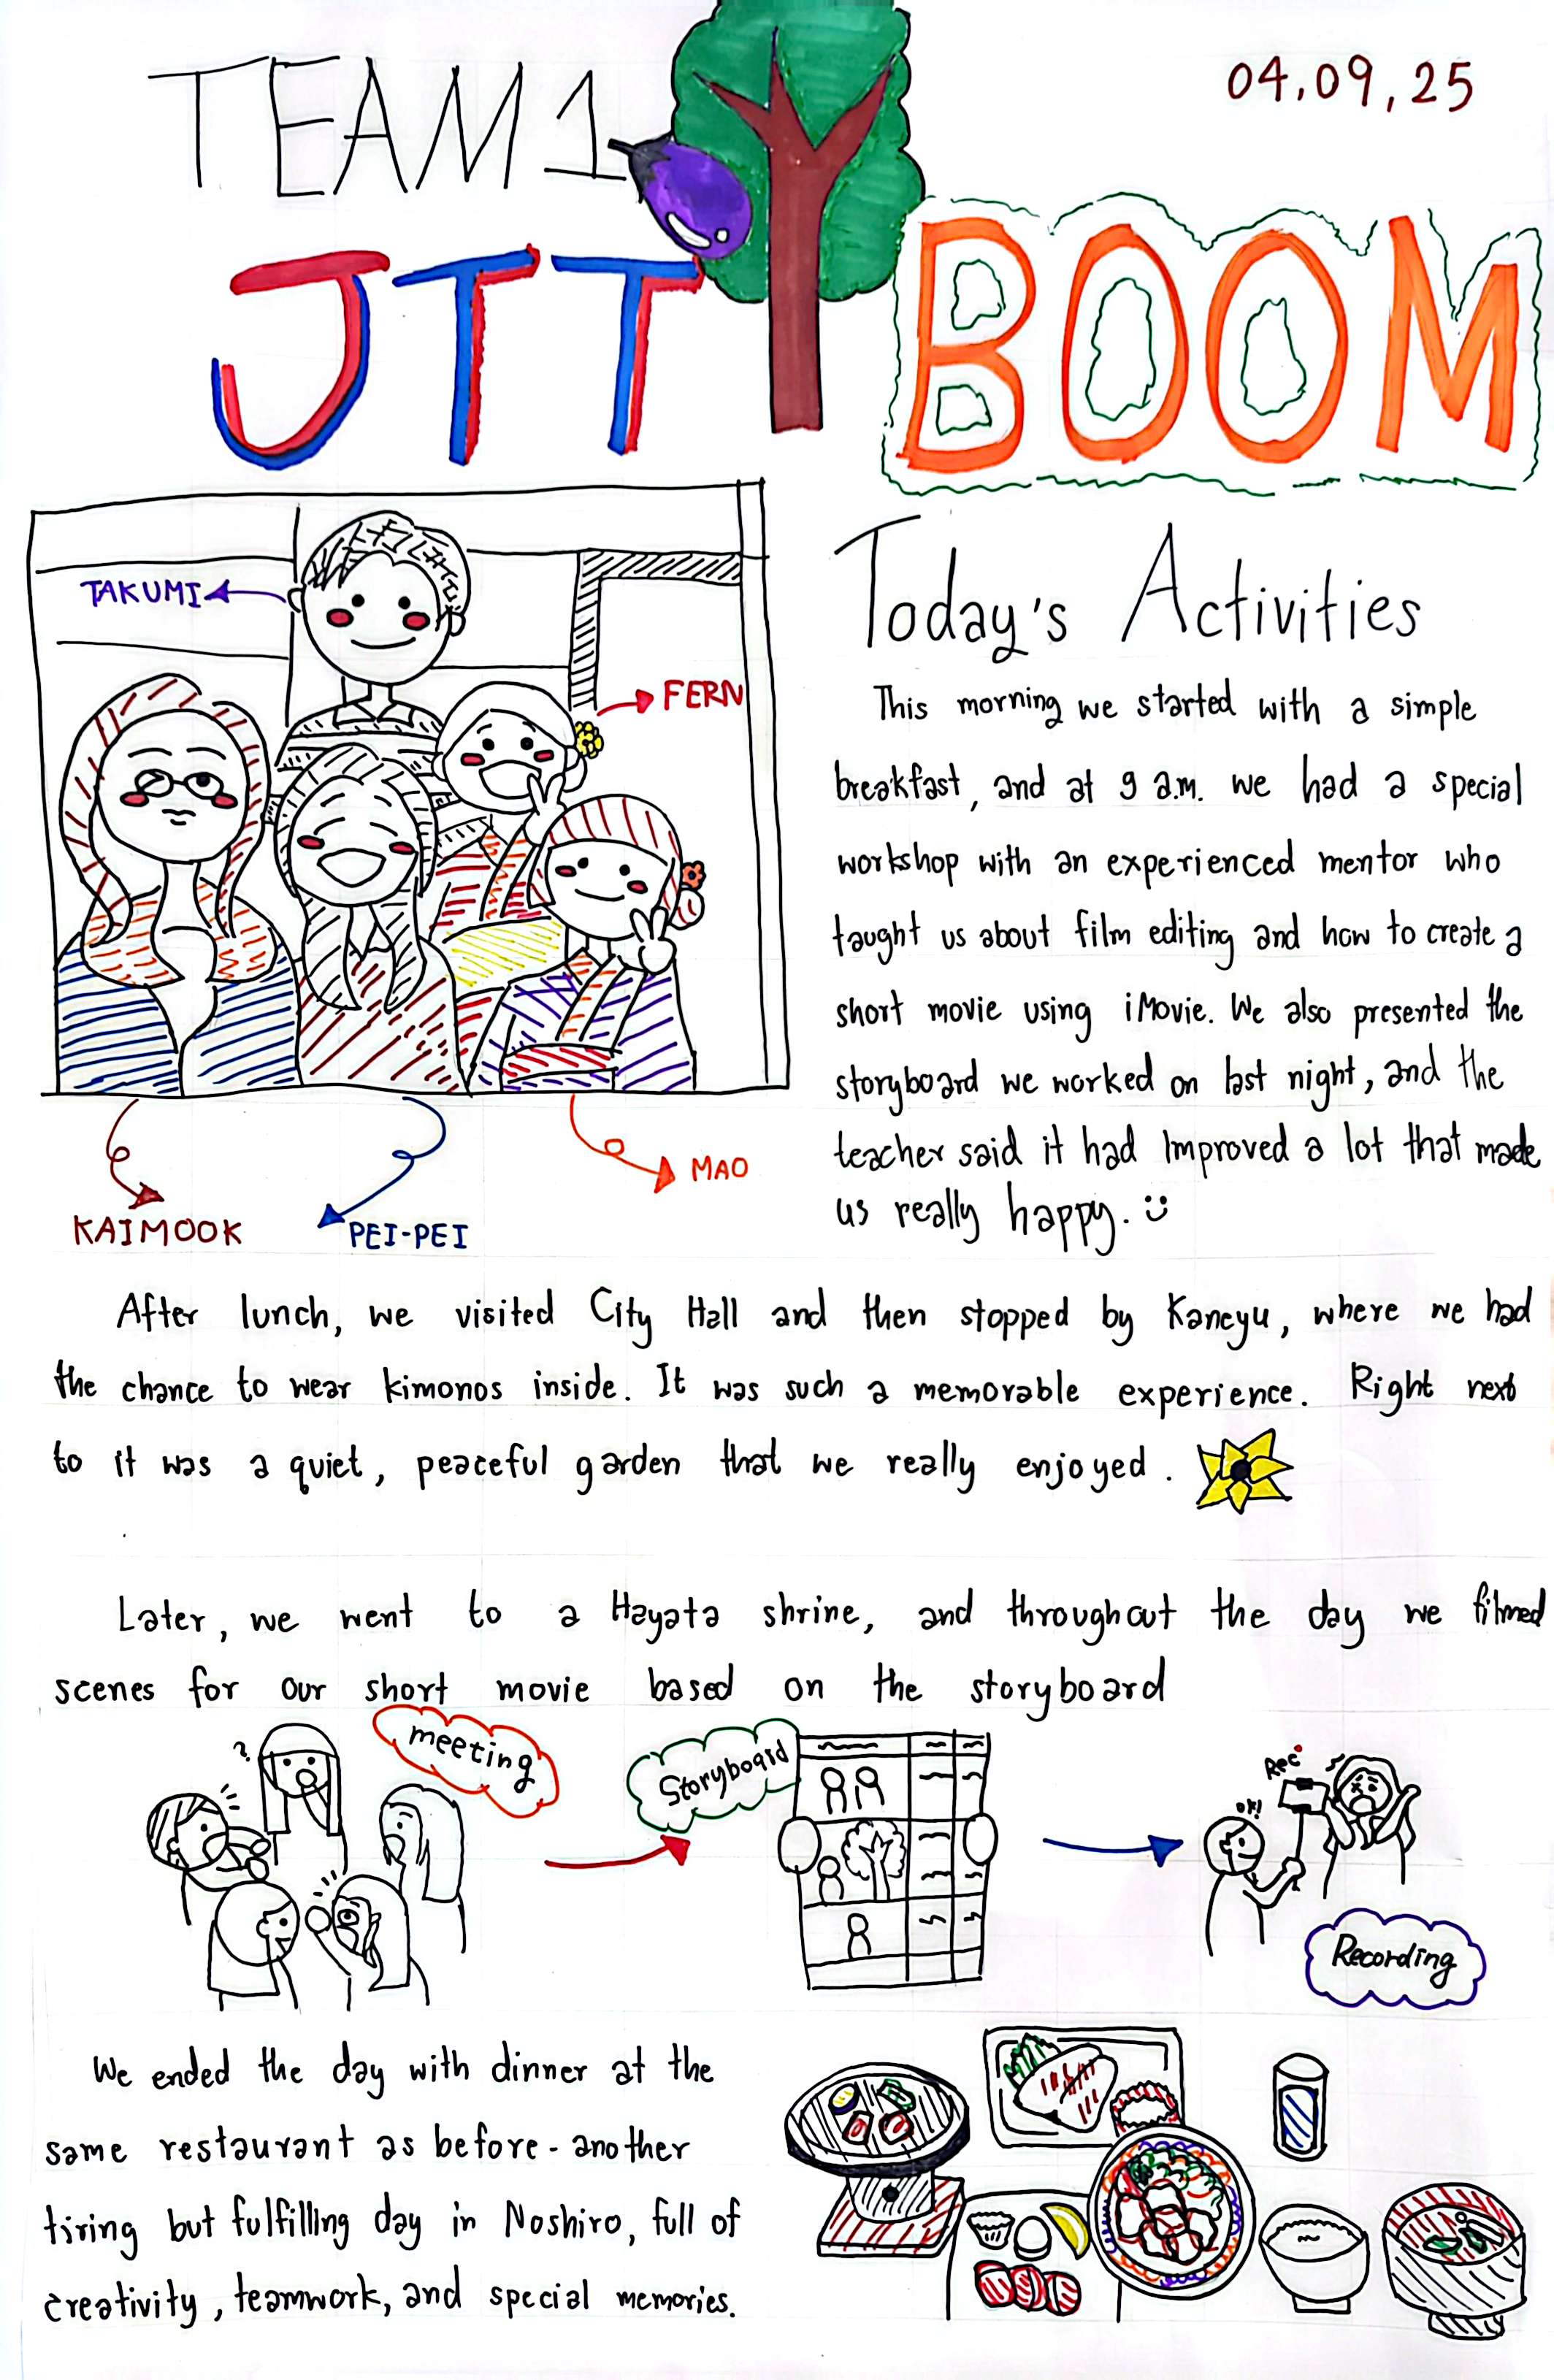 TEAM 1
04.09.25
JTT BOOM
TAKUMI
FERN
KAIMOOK
PEI-PEI
MAO
Today's Activities
This morning we started with a simple
breakfast, and at 9 a.m. we had a special
workshop with an experienced mentor who
taught us about film editing and how to create a
short movie using iMovie. We also presented the
storyboard we worked on last night, and the
teacher said it had improved a lot that made
us really happy.
After lunch, we visited City Hall and then stopped by Kaneyu, where we had
the chance to wear kimonos inside. It was such a memorable experience. Right next
to it was a quiet, peaceful garden that we really enjoyed.
Later, we went to a Hayata shrine, and throughout the day we filmed
scenes for our short movie based on the storyboard
?
meeting
Storyboard
Rec
OK!
Recording
We ended the day with dinner at the
same restaurant as before - another
tiring but fulfilling day in Noshiro, full of
creativity, teamwork, and special memories.